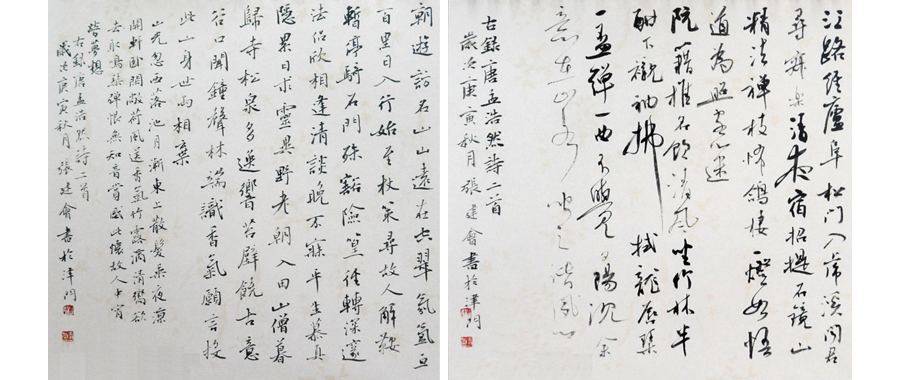 朝遊訪名山山遠在空翠氛氲亘
百里日入行始至杖策尋故人解鞍
暫亭騎石門殊谿險篁徑轉深邃
法侶欣相逢清談晚不寐平生慕真
隱累日求靈異野老朝入田山僧暮
歸寺松泉多逸響苔壁饒古意
谷口聞鐘聲林端識香氣願言投
此山身世兩相棄
山光忽西落池月漸東上散髮乘夜涼
開軒臥閑敞荷風送香氣竹露滴清響欲
去取鳴琴彈恨無知音賞感此懷故人中宵
勞夢想
右錄唐孟浩然詩二首
歲次庚寅秋月張建會書於津門
江路經廬阜松門入虎溪聞君
尋寂樂清夜宿招提石鏡山
精怯禪枝怖鴿棲一燈如悟
道為照客心迷
阮籍推名飲清風坐竹林半
酣下襯袖拂拭龍唇琴
一盃彈一曲不覺夕陽沉余
意在山水聞之諧夙心
右錄唐孟浩然詩二首
歲次庚寅秋月張建會書於津門